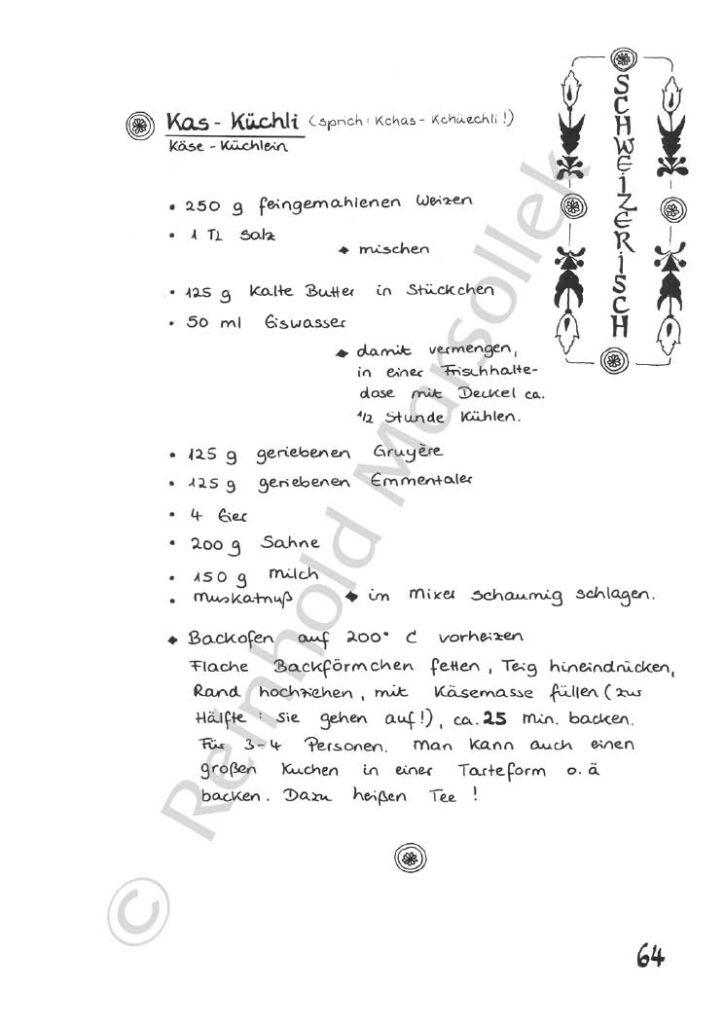 Kas - Küchli (sprich: Kchas - Kchüechli!)
Käse - Küchlein
SCHWEIZERISCH
• 250 g feingemahlenen Weizen
• 1 TL Salz
◆ mischen
• 125 g Kalte Butter in Stückchen
• 50 ml Eiswasser
◆ damit vermengen,
in einer Frischhalte-
dose mit Deckel ca.
1/2 Stunde Kühlen.
• 125 g geriebenen Gruyère
• 125 g geriebenen Emmentaler
• 4 Eier
• 200 g Sahne
• 150 g Milch
• Muskatnuß ◆ im Mixer schaumig schlagen.
◆ Backofen auf 200° C vorheizen
Flache Backförmchen fetten, Teig hineindrücken,
Rand hochziehen, mit Käsemasse füllen (zur
Hälfte: sie gehen auf!), ca. 25 min. backen.
Für 3-4 Personen. Man kann auch einen
großen Kuchen in einer Tarteform o.ä
backen. Dazu heißen Tee!
© Reinhold Marsollek
64